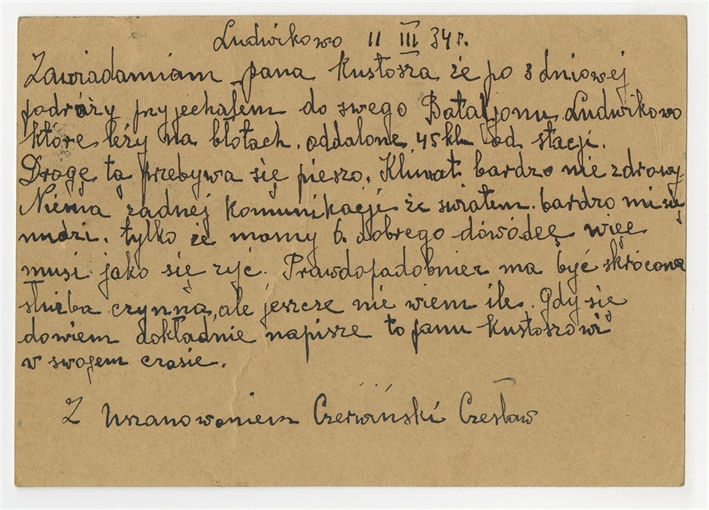 Ludwikowo 11 III 34 r.
Zawiadamiam pana kustosza że po 3 dniowej
podróży przyjechałem do swego Bataljonu Ludwikowo
które leży na błotach. oddalone 45 klm od stacji.
Drogę tą przebywa się pieszo. Klimat bardzo nie zdrowy
Niema żadnej komunikacji że światem. bardzo mi się
nudzi. tylko że mamy b. dobrego dowódcę więc
musi jako się żyć. Prawdopodobniez ma być skrócona
służba czynna, ale jeszcze nie wiem ile. Gdy się
dowiem dokładnie napisze to panu kustoszowi
w swojem czasie.
Z Uszanowaniem Czerwiński Czesław